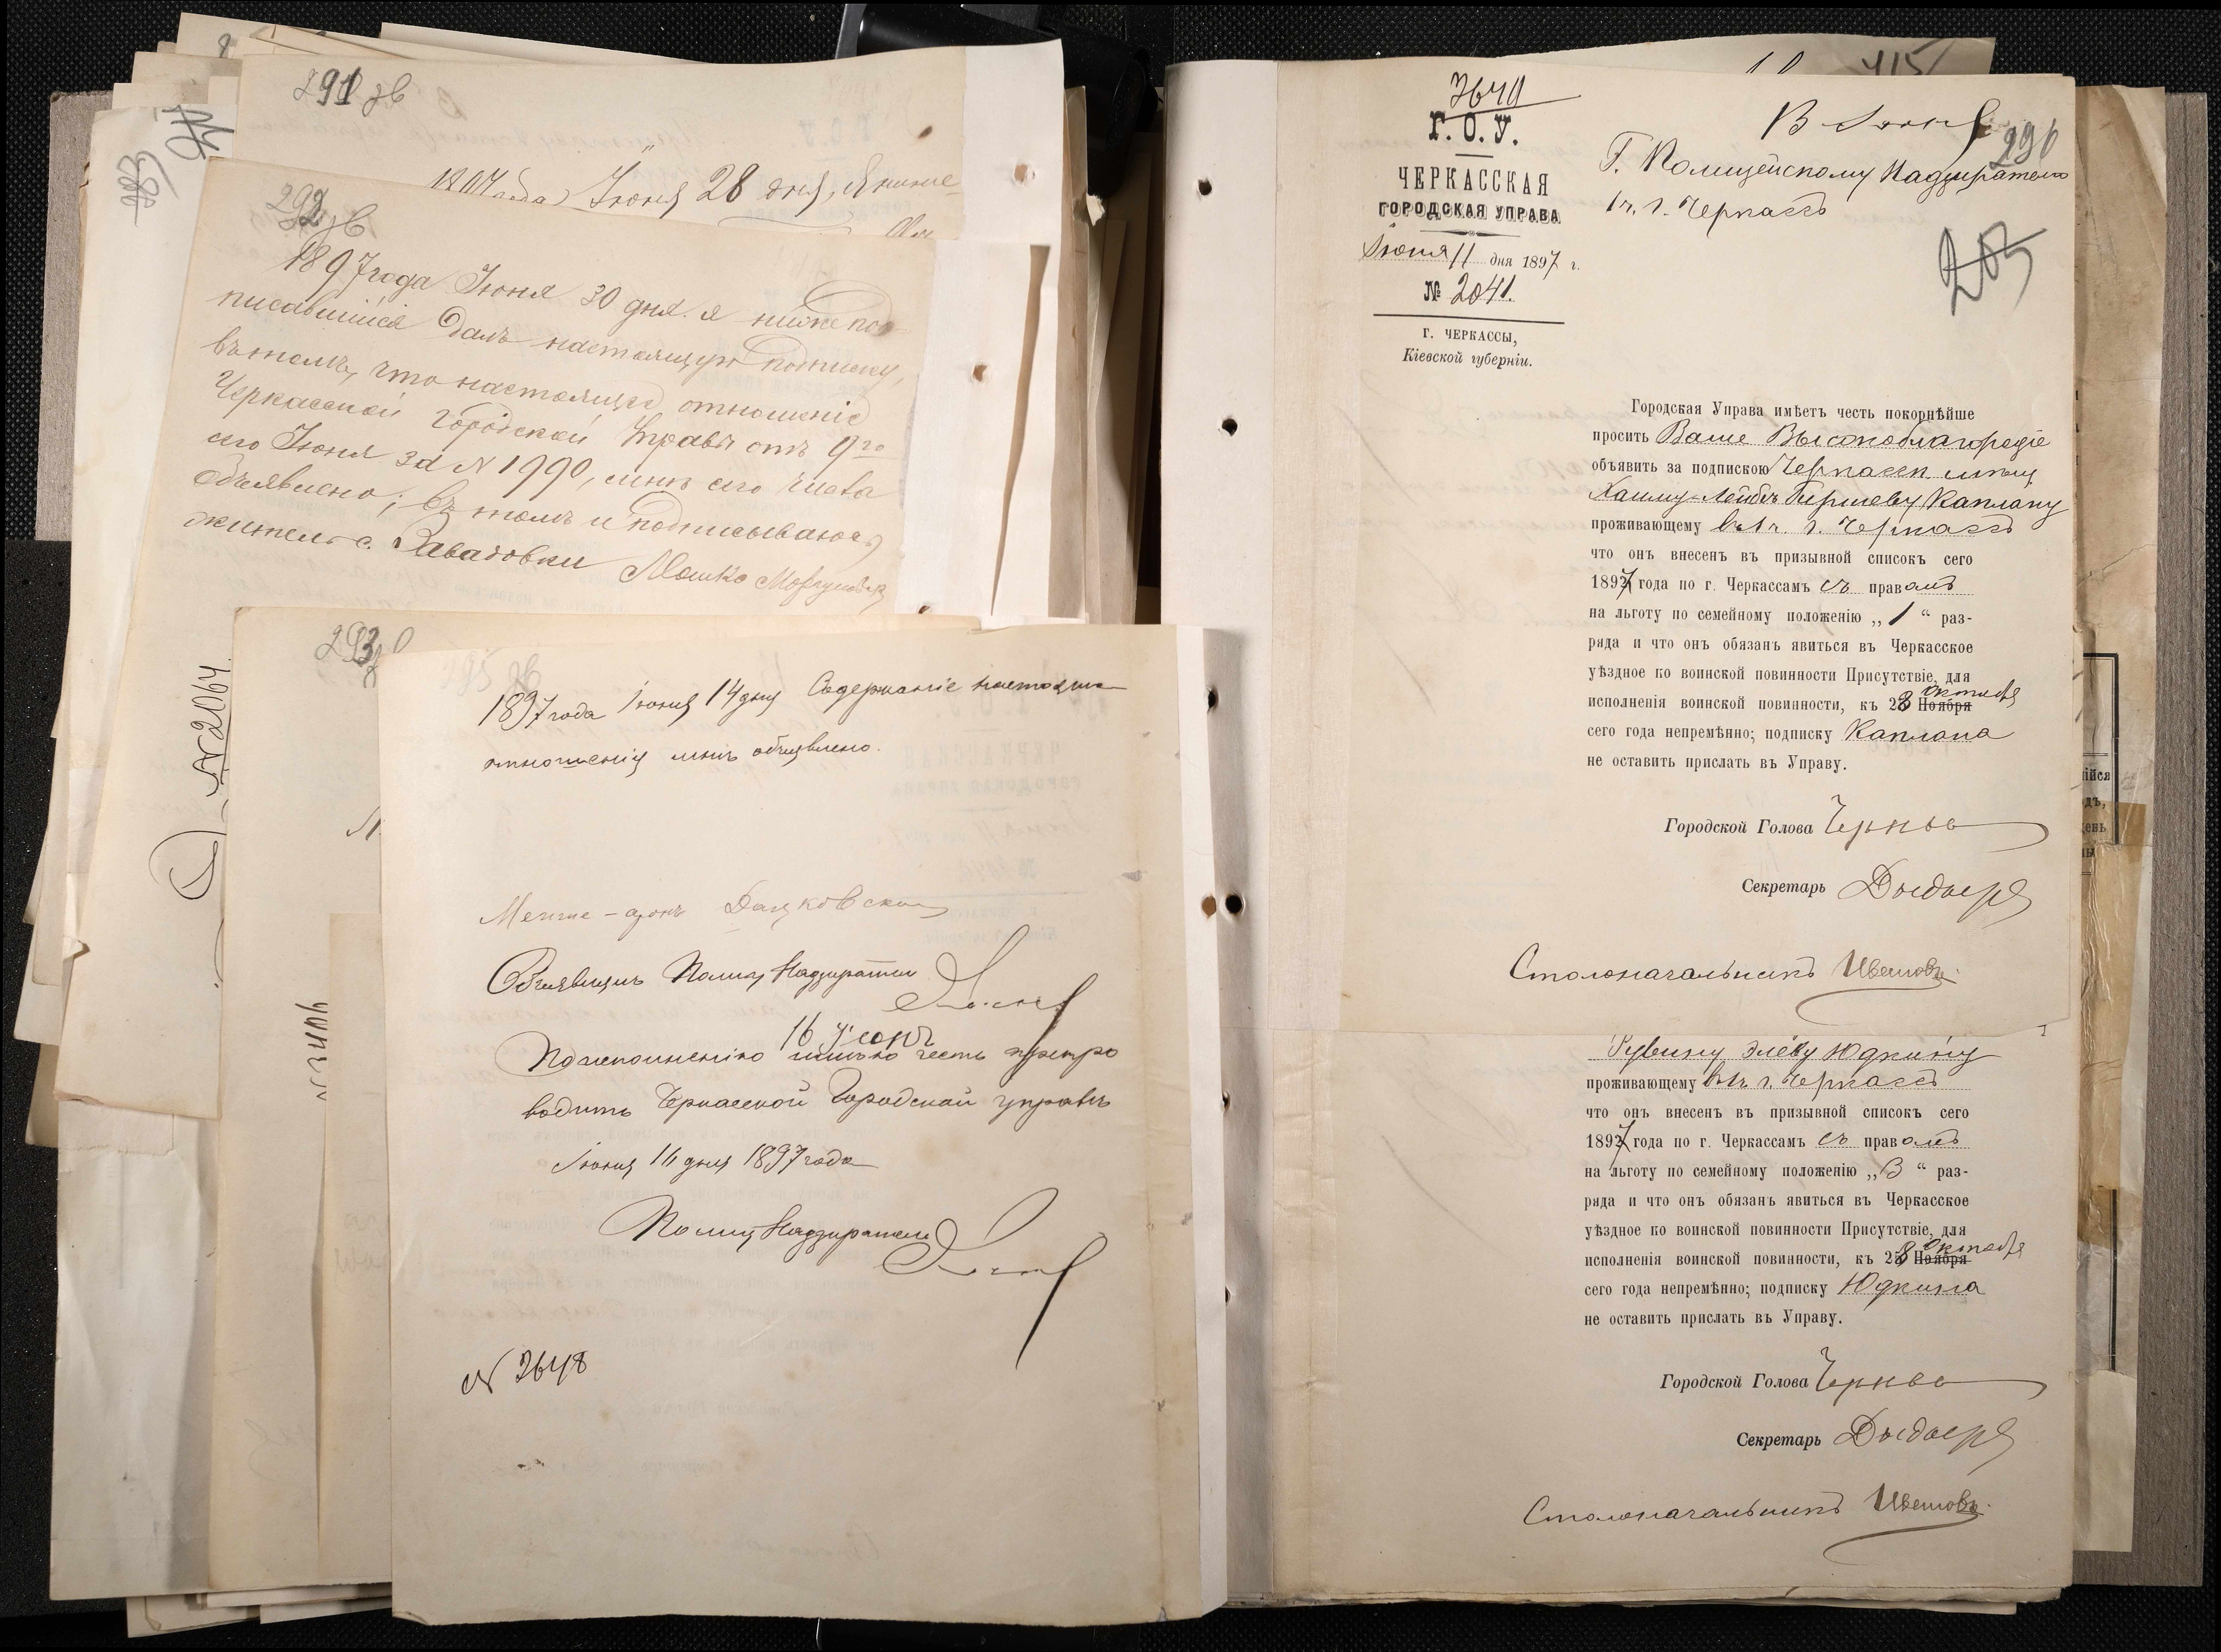 291 зв
1897 года Июня 28 дня, я ниже
292 зв
1897 года Июня 30 дня. я нижепод-
писавшійся далъ настоящую подписку,
въ томъ, что настоящее отношеніе
Черкасской Городской Управы отъ 9го
сего Июня за № 1990, мнѣ сего числа
объявлено; въ томъ и подписываюсь
жители с. Завадовки Мошко Моргуновск
№ 2064.
293
1897 года Іюня 14 дня Содержаніе настояща
отношенія мнѣ объявлено.
Дацковскій
Объявилъ Полиц Надзиратель
16 Іюня
По исполненію имѣю честь препро
водить Черкасской Городской управѣ
Іюня 16 дня 1897 года
Полиц Надзиратель
№ 3648
415
3640
Г. О. У.
ЧЕРКАССКАЯ
ГОРОДСКАЯ УПРАВА
Іюня 11 дня 1897 г.
№ 2041.
Г. ЧЕРКАССЫ,
Кіевской губерніи.
13 Іюня
296
Г. Полицейскому Надзирателю
1 ч. г. Черкассъ
205
Городская Управа имѣетъ честь покорнѣйше
просить Ваше Высокоблагородіе
объявить за подпискою Черкасск. мѣщ
Хаиму-Лейбѣ Гершеву Каплану
проживающему въ 1 ч. г. Черкассъ
что онъ внесенъ въ призывной списокъ сего
1897 года по г. Черкассамъ съ правомъ
на льготу по семейному положенію „1“ раз-
ряда и что онъ обязанъ явиться въ Черкасское
уѣздное по воинской повинности Присутствіе, для
октября
исполненія воинской повинности, къ 28 Ноября
сего года непремѣнно; подписку Каплана
не оставить прислать въ Управу.
Городской Голова
Секретарь
Столоначальникъ Цвѣтовъ
Рувину Элеву Юдкину
проживающему въ 1 ч. г. Черкассъ
что онъ внесенъ въ призывной списокъ сего
1897 года по г. Черкассамъ съ правомъ
на льготу по семейному положенію „3“ раз-
ряда и что онъ обязанъ явиться въ Черкасское
уѣздное по воинской повинности Присутствіе, для
октября
исполненія воинской повинности, къ 28 Ноября
сего года непремѣнно; подписку Юдкина
не оставить прислать въ Управу.
Городской Голова
Секретарь
Столоначальникъ Цвѣтовъ